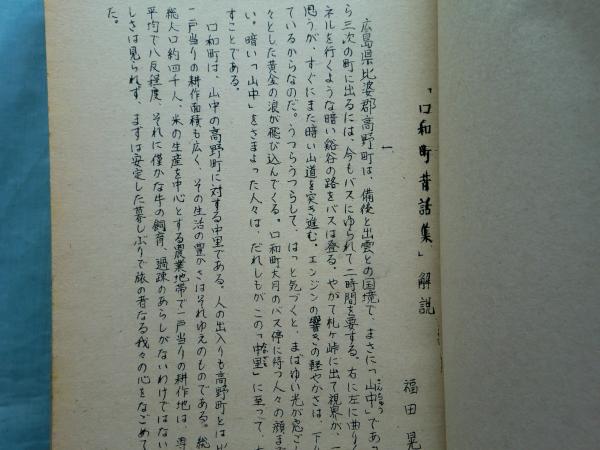 「口和町昔話集」解説
福田晃
一
広島県比婆郡高野町は、備後と出雲との国境で、まさに「山中」であっ
さんちゅう
ら三次の町に出るには、今もバスにゆられて二時間を要する。右に左に曲りく
ネルを行くような暗い谿谷の路をバスは登る。やがて札ケ峠に出て視界が、一
思うが、すぐにまた暗い山道を突き進む。エンジンの響きの軽やかさは、下り
ているからなのだ。うつらうつらして、はっと気づくと、まばゆい光が窓ごし
々とした黄金の浪が飛び込んでくる。口和町大月のバス停に待つ人々の顔ま
い。暗い「山中」をさまよった人々は、だれしもがこの「中里」に至って、
なかざと
すことである。
口和町は、山中の高野町に対する中里である。人の出入りも高野町とは
一戸当りの耕作面積も広く、その生活の豊かさはそれゆえのものである。総
総人口約四千人、米の生産を中心とする農業地帯で一戸当りの耕作地は、専
平均で八反程度、それに僅かな牛の飼育、過疎のあらしがないわけではない
しさは見られず、まずは安定した暮しぶりで旅の者なる我々の心をなごめて
た。